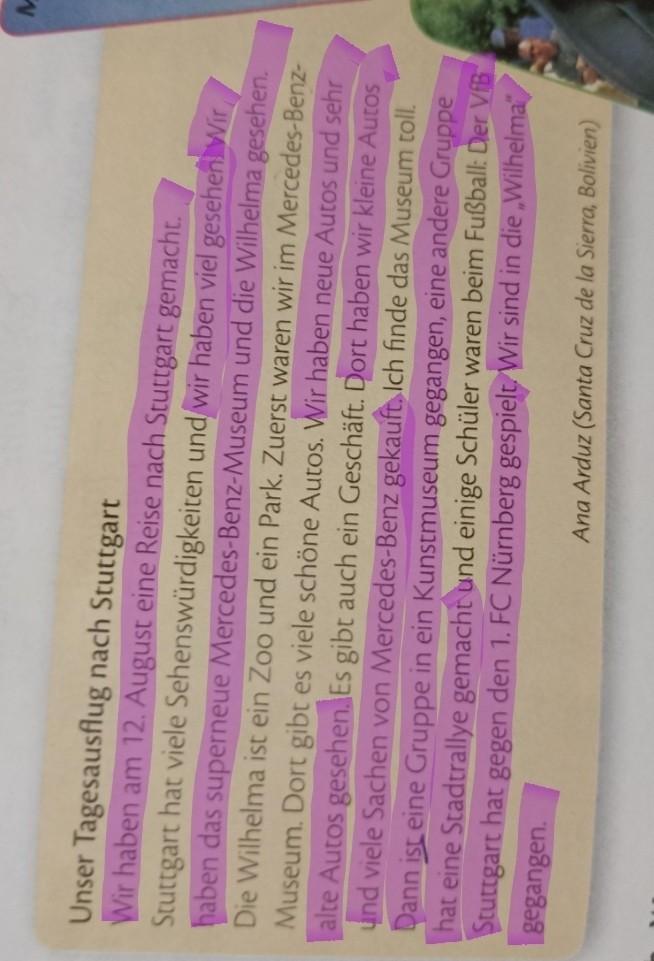 Unser Tagesausflug nach Stuttgart
Wir haben am 12. August eine Reise nach Stuttgart gemacht.
Stuttgart hat viele Sehenswürdigkeiten und wir haben viel gesehen. Wir
haben das superneue Mercedes-Benz-Museum und die Wilhelma gesehen.
Die Wilhelma ist ein Zoo und ein Park. Zuerst waren wir im Mercedes-Benz-
Museum. Dort gibt es viele schöne Autos. Wir haben neue Autos und sehr
alte Autos gesehen. Es gibt auch ein Geschäft. Dort haben wir kleine Autos
und viele Sachen von Mercedes-Benz gekauft. Ich finde das Museum toll.
Dann ist eine Gruppe in ein Kunstmuseum gegangen, eine andere Gruppe
hat eine Stadtrallye gemacht und einige Schüler waren beim Fußball: Der VfB
Stuttgart hat gegen den 1. FC Nürnberg gespielt. Wir sind in die „Wilhelma“
gegangen.
Ana Arduz (Santa Cruz de la Sierra, Bolivien)